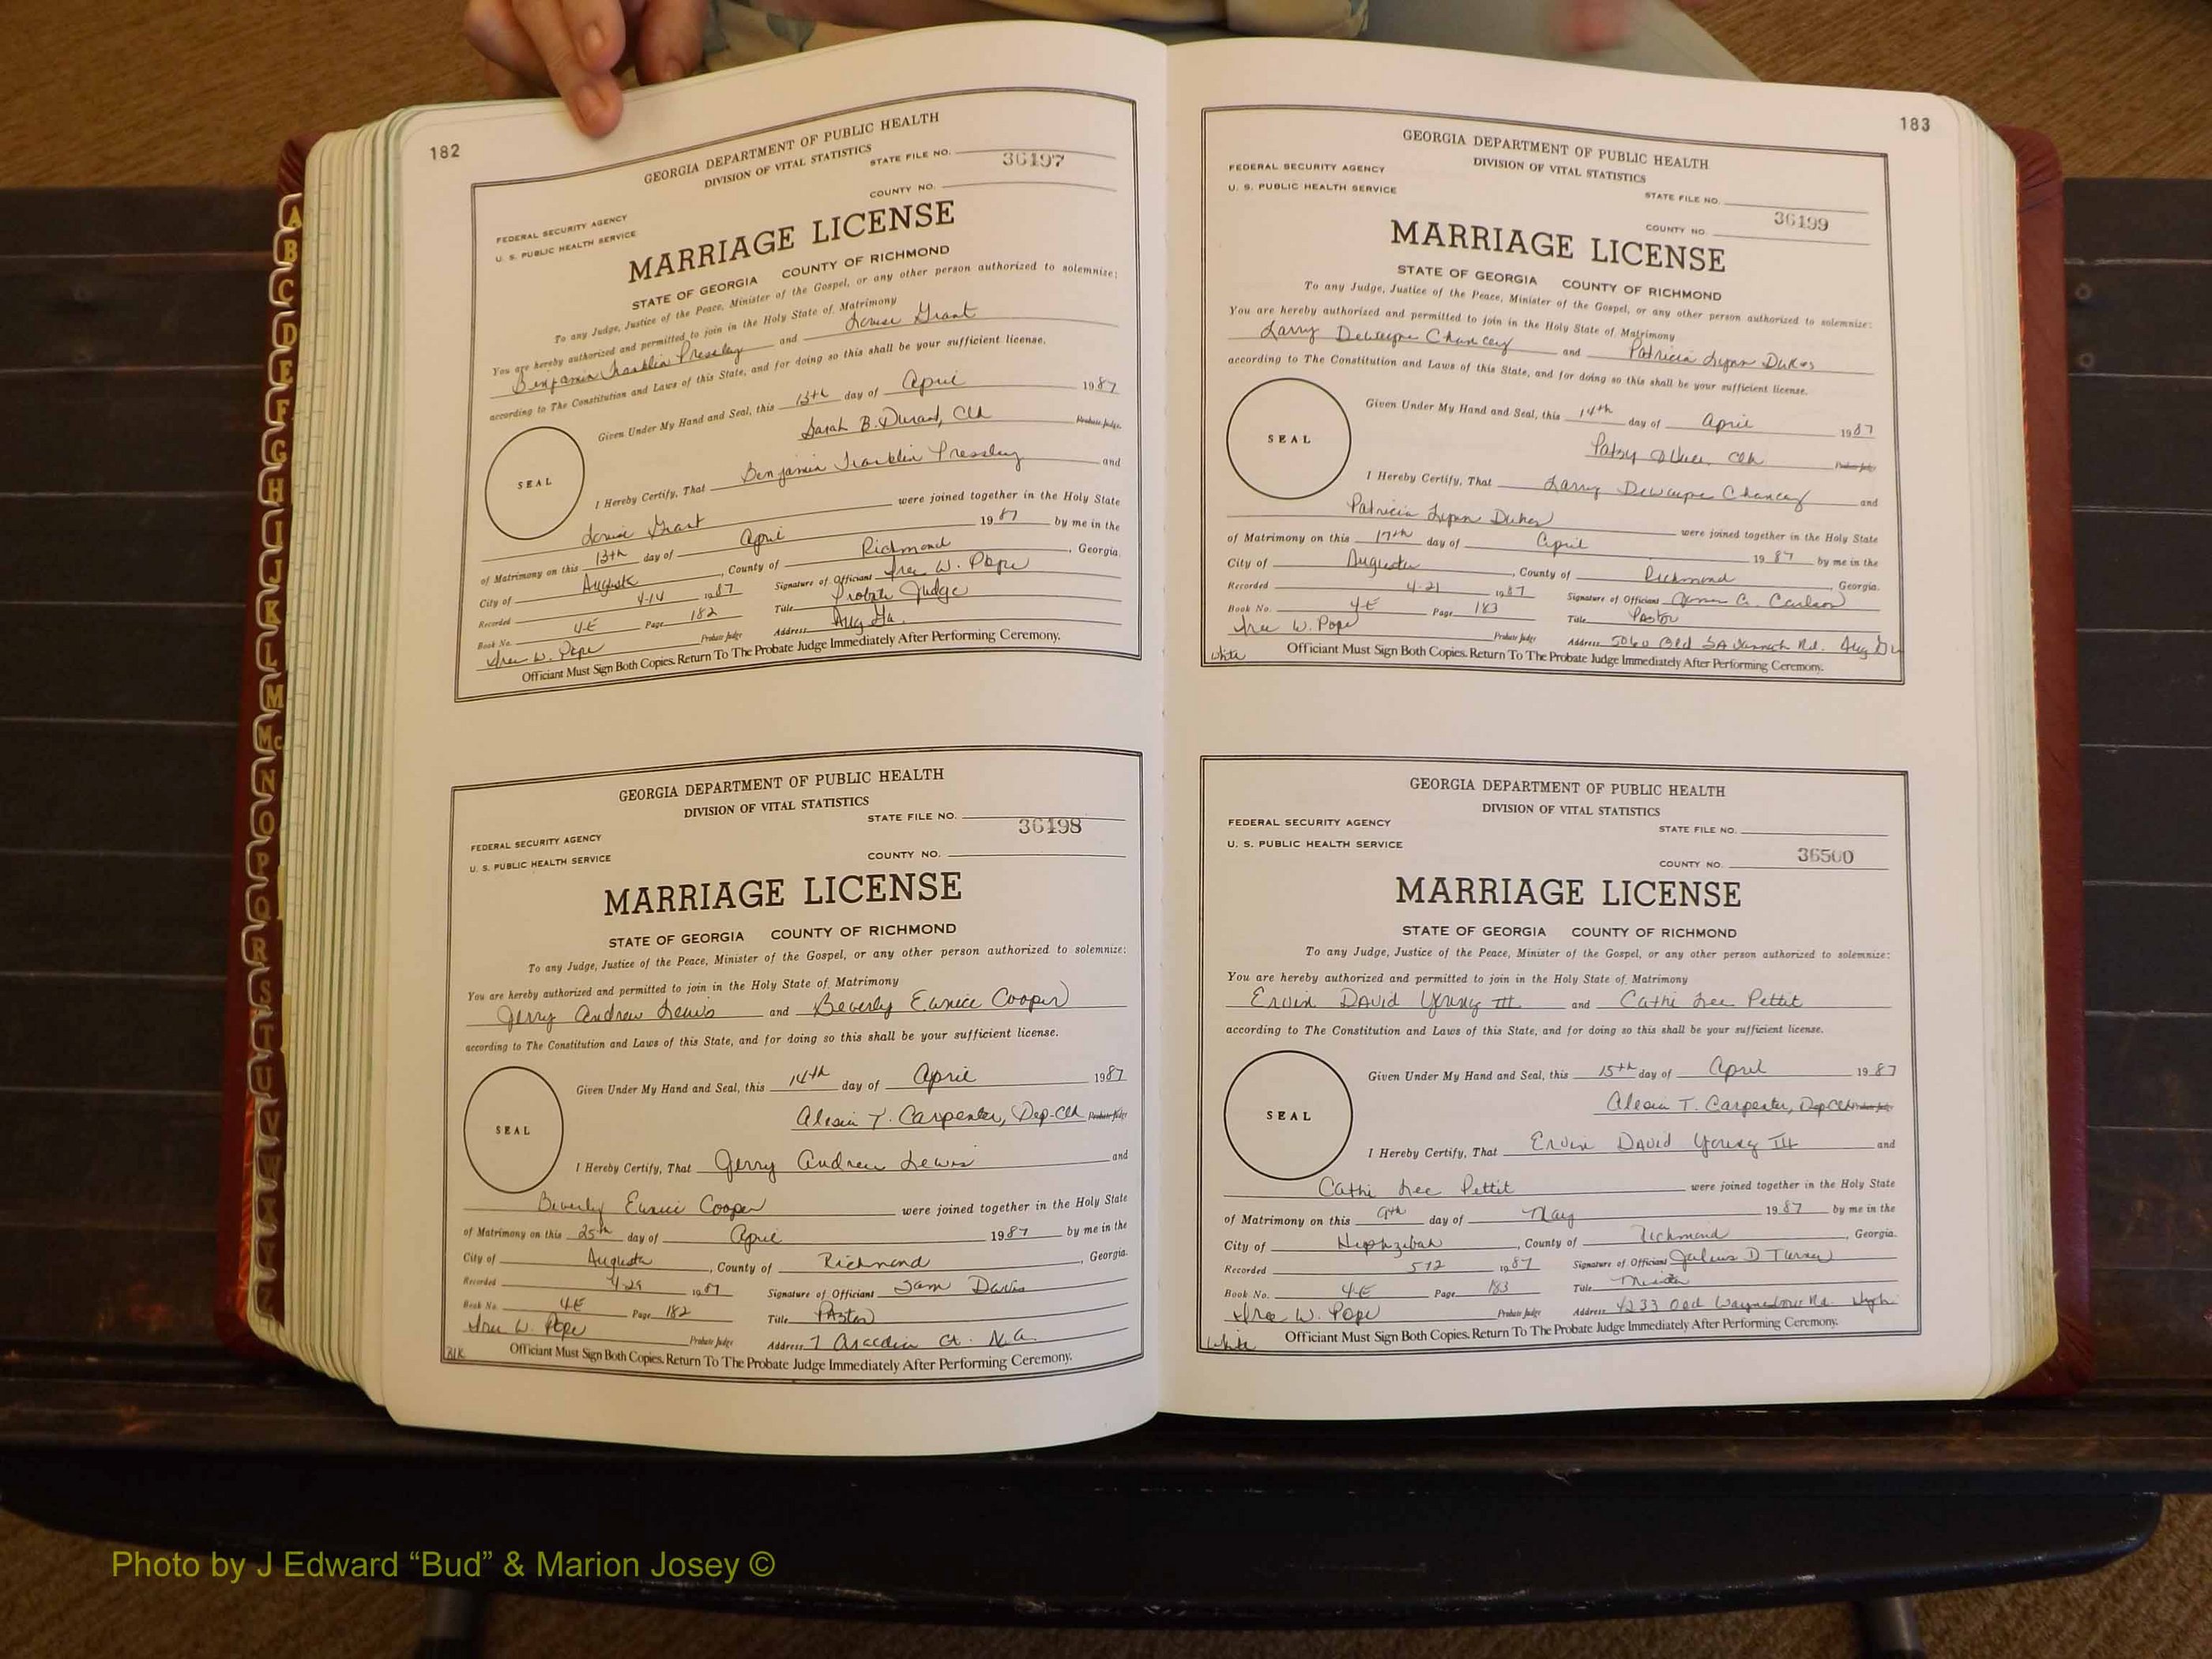 182
GEORGIA DEPARTMENT OF PUBLIC HEALTH
DIVISION OF VITAL STATISTICS
STATE FILE NO. 36197
COUNTY NO.
FEDERAL SECURITY AGENCY
U. S. PUBLIC HEALTH SERVICE
MARRIAGE LICENSE
STATE OF GEORGIA COUNTY OF RICHMOND
To any Judge, Justice of the Peace, Minister of the Gospel, or any other person authorized to solemnize:
You are hereby authorized and permitted to join in the Holy State of Matrimony
Benjamin Franklin Pressley and Louise Grant
according to The Constitution and Laws of this State, and for doing so this shall be your sufficient license.
Given Under My Hand and Seal, this 13th day of April 1987
Sarah B. Durant, Clk Probate Judge.
SEAL
I Hereby Certify, That Benjamin Franklin Pressley and
Louise Grant were joined together in the Holy State
of Matrimony on this 13th day of April 1987 by me in the
City of Augusta, County of Richmond, Georgia.
Recorded 4-14 1987 Signature of Officiant W. Pope
Book No. 4-E Page 182 Title Probate Judge
W. Pope Probate Judge Address Aug Ga.
Officiant Must Sign Both Copies. Return To The Probate Judge Immediately After Performing Ceremony.
GEORGIA DEPARTMENT OF PUBLIC HEALTH
DIVISION OF VITAL STATISTICS
STATE FILE NO. 36198
FEDERAL SECURITY AGENCY
U. S. PUBLIC HEALTH SERVICE
COUNTY NO.
MARRIAGE LICENSE
STATE OF GEORGIA COUNTY OF RICHMOND
To any Judge, Justice of the Peace, Minister of the Gospel, or any other person authorized to solemnize:
You are hereby authorized and permitted to join in the Holy State of Matrimony
Jerry Andrew Lewis and Beverly Eunice Cooper
according to The Constitution and Laws of this State, and for doing so this shall be your sufficient license.
Given Under My Hand and Seal, this 14th day of April 1987
Alesia T. Carpenter, Dep-Clk Probate Judge
SEAL
I Hereby Certify, That Jerry Andrew Lewis and
Beverly Eunice Cooper were joined together in the Holy State
of Matrimony on this 25th day of April 1987 by me in the
City of Augusta, County of Richmond, Georgia.
Recorded 4-29 1987 Signature of Officiant Sam Davis
Book No. 4E Page 182 Title Pastor
W. Pope Probate Judge Address 7 Ct. N.A.
Blk Officiant Must Sign Both Copies. Return To The Probate Judge Immediately After Performing Ceremony.
183
GEORGIA DEPARTMENT OF PUBLIC HEALTH
DIVISION OF VITAL STATISTICS
FEDERAL SECURITY AGENCY
U. S. PUBLIC HEALTH SERVICE
STATE FILE NO.
COUNTY NO. 36199
MARRIAGE LICENSE
STATE OF GEORGIA COUNTY OF RICHMOND
To any Judge, Justice of the Peace, Minister of the Gospel, or any other person authorized to solemnize:
You are hereby authorized and permitted to join in the Holy State of Matrimony
Larry Dewayne Chancey and Patricia Lynn Dukes
according to The Constitution and Laws of this State, and for doing so this shall be your sufficient license.
Given Under My Hand and Seal, this 14th day of April 1987
Patsy Clk Probate Judge
SEAL
I Hereby Certify, That Larry Dewayne Chancey and
Patricia Lynn Dukes were joined together in the Holy State
of Matrimony on this 17th day of April 1987 by me in the
City of Augusta, County of Richmond, Georgia.
Recorded 4-21 1987 Signature of Officiant Carlson
Book No. 4-E Page 183 Title Pastor
W. Pope Probate Judge Address 5060 Old Savannah Rd. Aug
White Officiant Must Sign Both Copies. Return To The Probate Judge Immediately After Performing Ceremony.
GEORGIA DEPARTMENT OF PUBLIC HEALTH
DIVISION OF VITAL STATISTICS
FEDERAL SECURITY AGENCY
STATE FILE NO.
U. S. PUBLIC HEALTH SERVICE
COUNTY NO. 36500
MARRIAGE LICENSE
STATE OF GEORGIA COUNTY OF RICHMOND
To any Judge, Justice of the Peace, Minister of the Gospel, or any other person authorized to solemnize:
You are hereby authorized and permitted to join in the Holy State of Matrimony
Ervin David Young III and Cathi Lee Pettit
according to The Constitution and Laws of this State, and for doing so this shall be your sufficient license.
Given Under My Hand and Seal, this 15th day of April 1987
Alesia T. Carpenter, Dep Clk Probate Judge
SEAL
I Hereby Certify, That Ervin David Young III and
Cathi Lee Pettit were joined together in the Holy State
of Matrimony on this 9th day of May 1987 by me in the
City of Hephzibah, County of Richmond, Georgia.
Recorded 5-12 1987 Signature of Officiant Julius D Turner
Book No. 4-E Page 183 Title
W. Pope Probate Judge Address 4233 Old Waynesboro Rd. Heph
White Officiant Must Sign Both Copies. Return To The Probate Judge Immediately After Performing Ceremony.
A
B
C
D
E
F
G
H
I
J
K
L
M
Mc
N
O
P
Q
R
S
T
U
V
W
Photo by J Edward “Bud” & Marion Josey ©